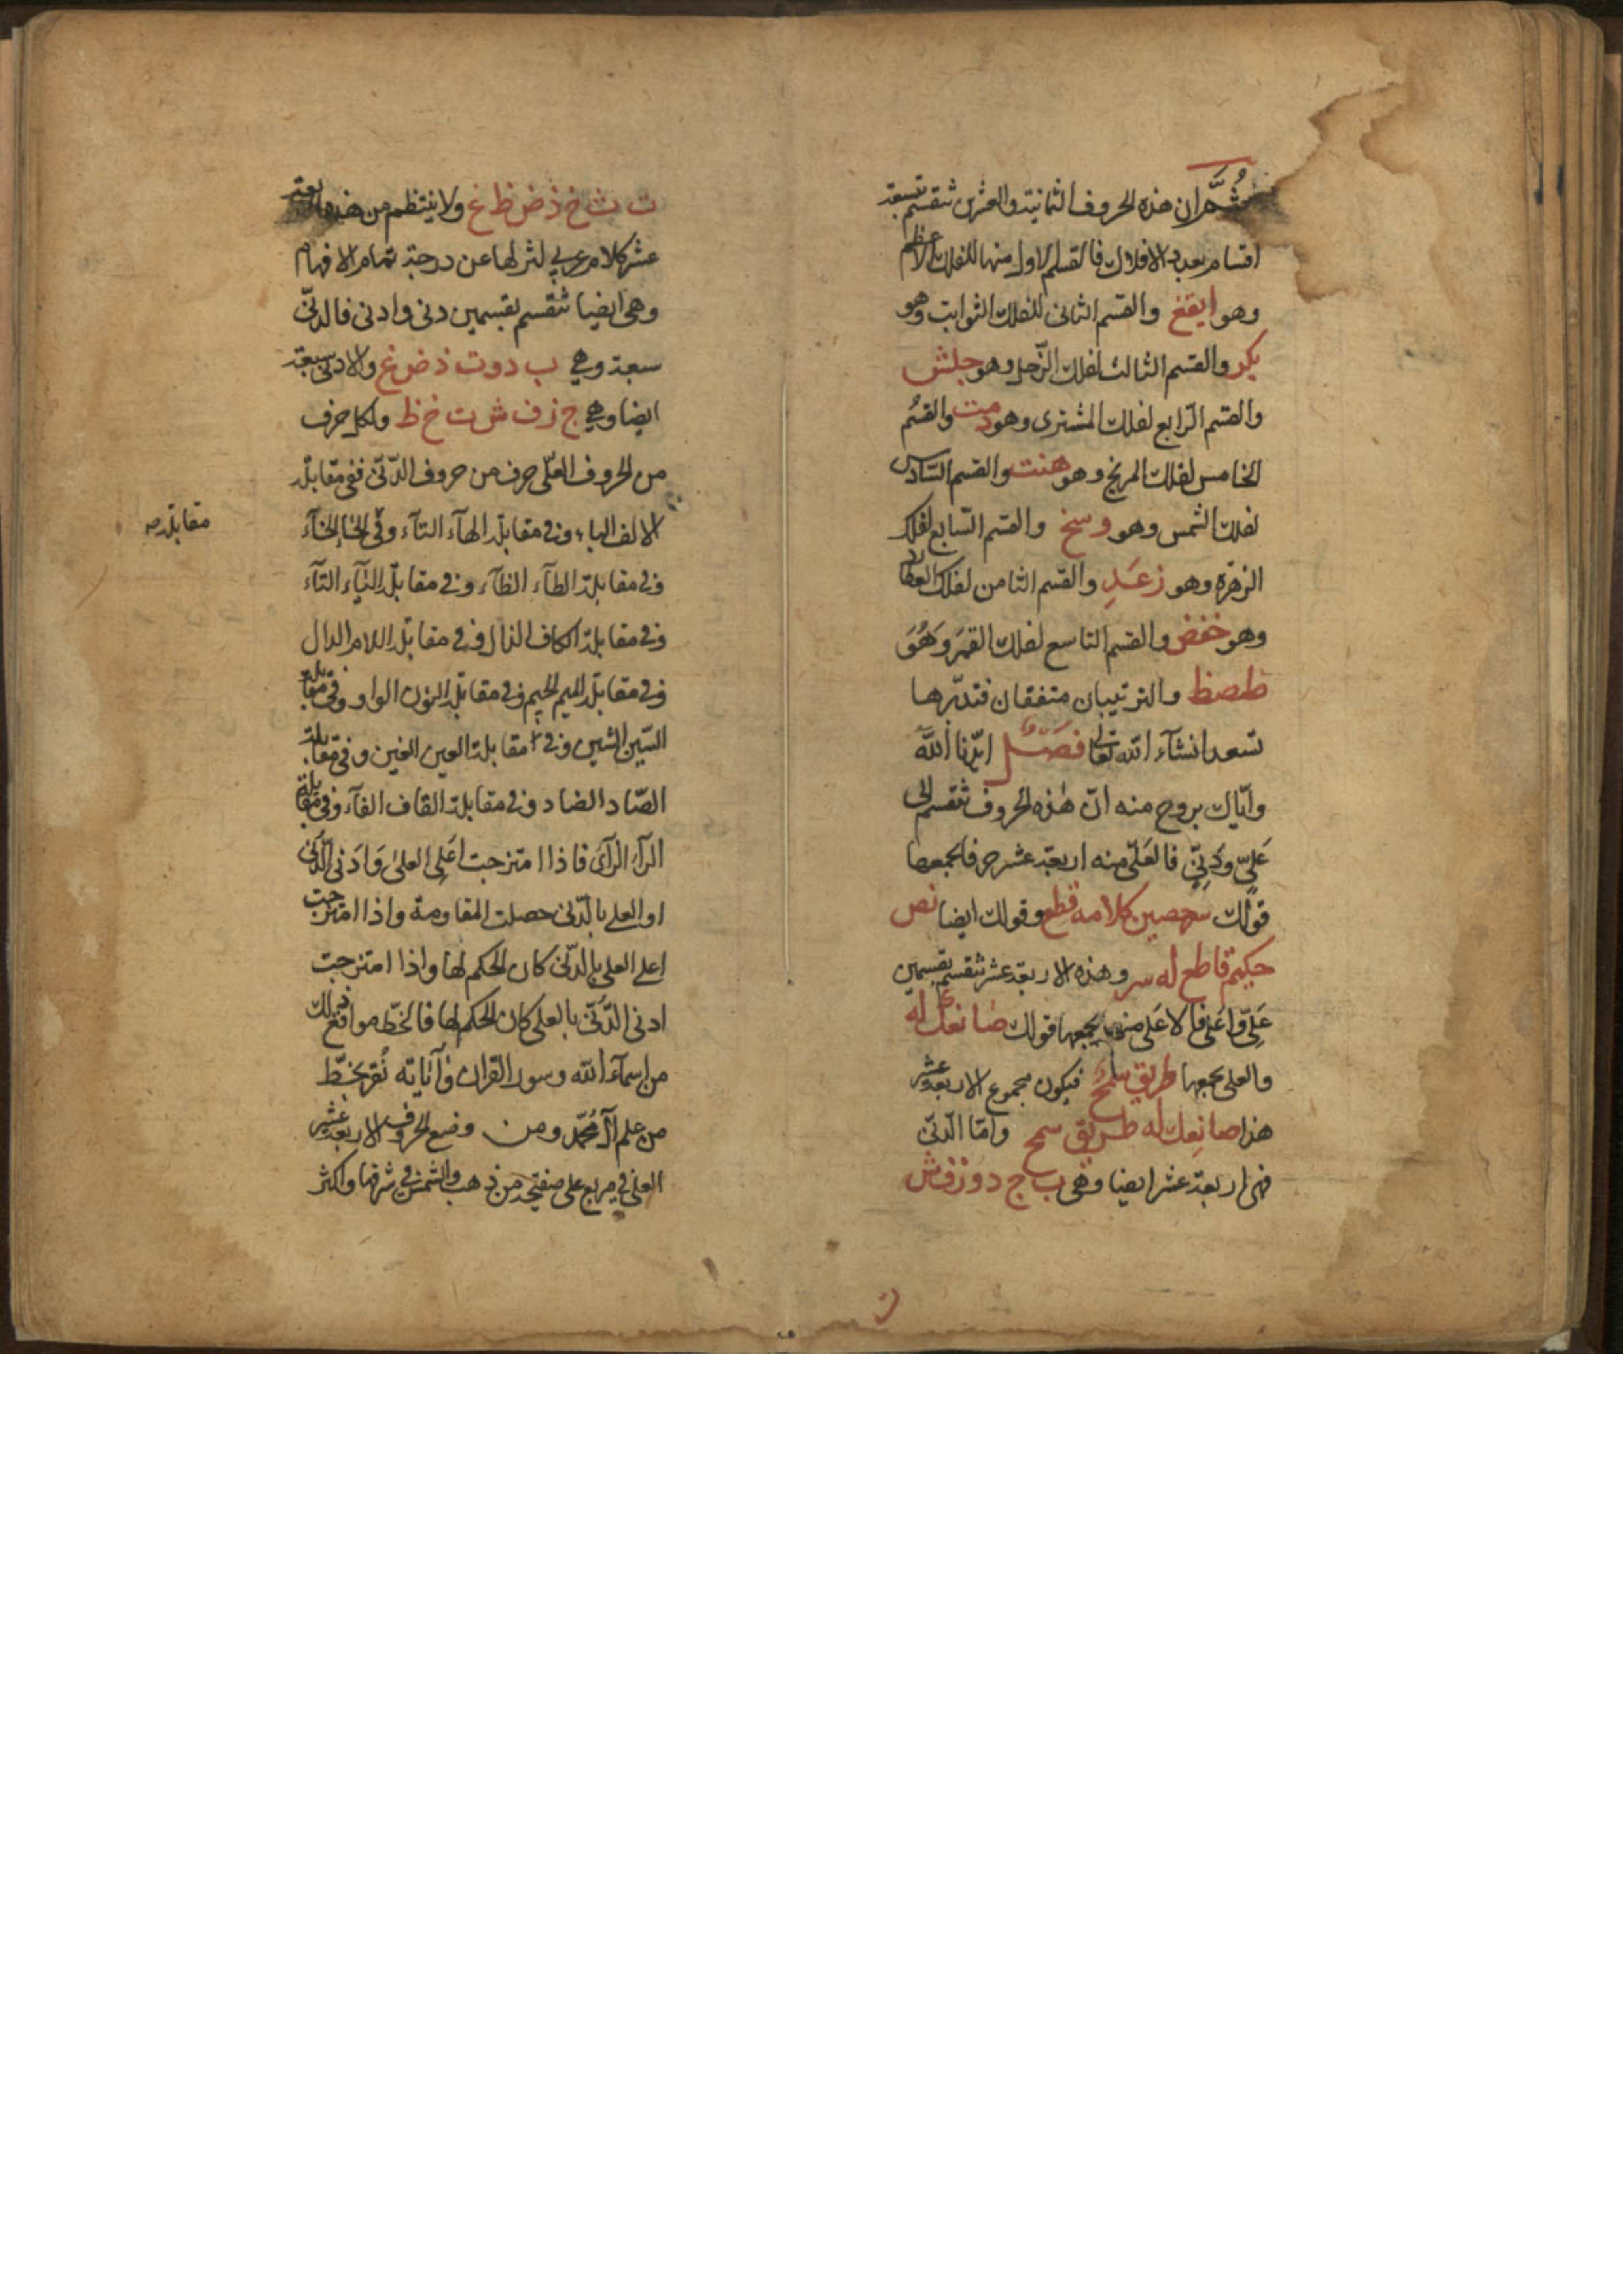 ثُمَّ ان هذه الحروف الثمانية والعشرين تنقسم تسعة
اقسام بعدد الافلاك فالقسم الاول منها للفلك الاعظم
وهو ايقغ والقسم الثانى للفلك الثوابت وهو
بكر والقسم الثالث لفلك الزّحل وهو جلش
والقسم الرّابع لفلك المشترى وهو دمت والقسُم
الخامس لفلك المريخ وهو هنث والقسم السّادس
لفلك الشمس وهو وسخ والقسم السّابع لفلك
الزهرة وهو زعَدِ والقسم الثامن لفلك العطارد
وهو حفض والقسم التاسع لفلك القمَر وَهُوَ
طصظ والترتيبان متفقان فتدبّرها
تسعد انشآء الله تعالى فصَل ايّدنا اللهَ
وايّاك بروح منه انّ هٰذه الحروف تنقسم الى
عَلىّ ودَنِىّ فالعَلىّ منه اربعة عشر حرفا يجمعها
قولك سحصين كلامه قطع وقولك ايضا نص
حكيم قاطع له سر وهذه الاربعة عشر تنقسم بقسمين
عَلىّ واَعَلى فالاعَلى منها يجمعها قولك صانعك له
والعلى يجمعها طريق سمح فيكون مجموع الاربعة عشر
هذا صانعك له طريق سمح وامّا الدّنىّ
فهى اربعة عشر ايضا وهى ب ج د و ز ف ش
ت ث خ ذ ض ظ غ ولا ينتظم من هذه الاربعة
عشر كلام عربي لنزلها عن درجة تمام الافهام
وهى ايضا تنقسم بقسمين دنى وادنى فالدنىّ
سبعة وهي ب د و ت ذ ض غ والادنى سبعة
ايضا وهي ج ز ف ش ث خ ظ ولكل حرف
من الحروف العلّى حرف من حروف الدّنىّ ففى مقابلة
الالف الباء وفى مقابلة الهآء التآء وفى الحآء الخآء
مقابلة صح
وفى مقابلة الطآء الظآء وفى مقابلة اليآء الثآء
وفى مقابلة الكاف الذال وفى مقابلة اللام الدال
وفى مقابلة الميم الجيم وفى مقابلة النون الواو وفى مقابلة
السّين الشين وفى مقابلة العين الغين وفى مقابلة
الصّاد الضاد وفى مقابلة القاف الفآء وفى مقابلة
الرآء الزآى فاذا امتزجت اعَلى العلىٰ وَادَنى الدّنَى
او العلى بالدّنى حصلت المقاومة واذا امتزجت
اعلى العلى بالدّنىّ كان الحكم لها واذا امتزجت
ادنى الدّنىّ بالعلى كان الحكم لها فالخطّ مواقع ذلك
من اسمآء الله وسور القران وآياته تُفز بخطّ
من علم آل مُحمّد ومن وضع الحروف الاربعة عشر
العلى فى مربع على صفيحة من ذهب والشمس فى شرفها واكثر